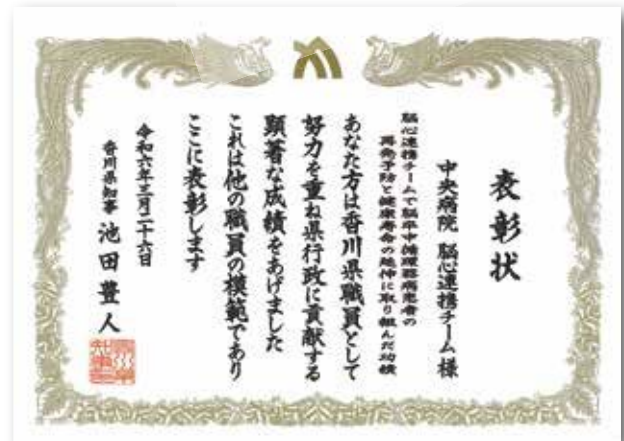 表彰状
中央病院 脳心連携チーム様
脳心連携チームで脳卒中循環器病患者の
再発予防と健康寿命の延伸に取り組んだ功績
あなた方は香川県職員として
努力を重ね県行政に貢献する
顕著な成績をあげました
これは他の職員の模範であり
ここに表彰します
令和六年三月二十六日
香川県知事 池田豊人